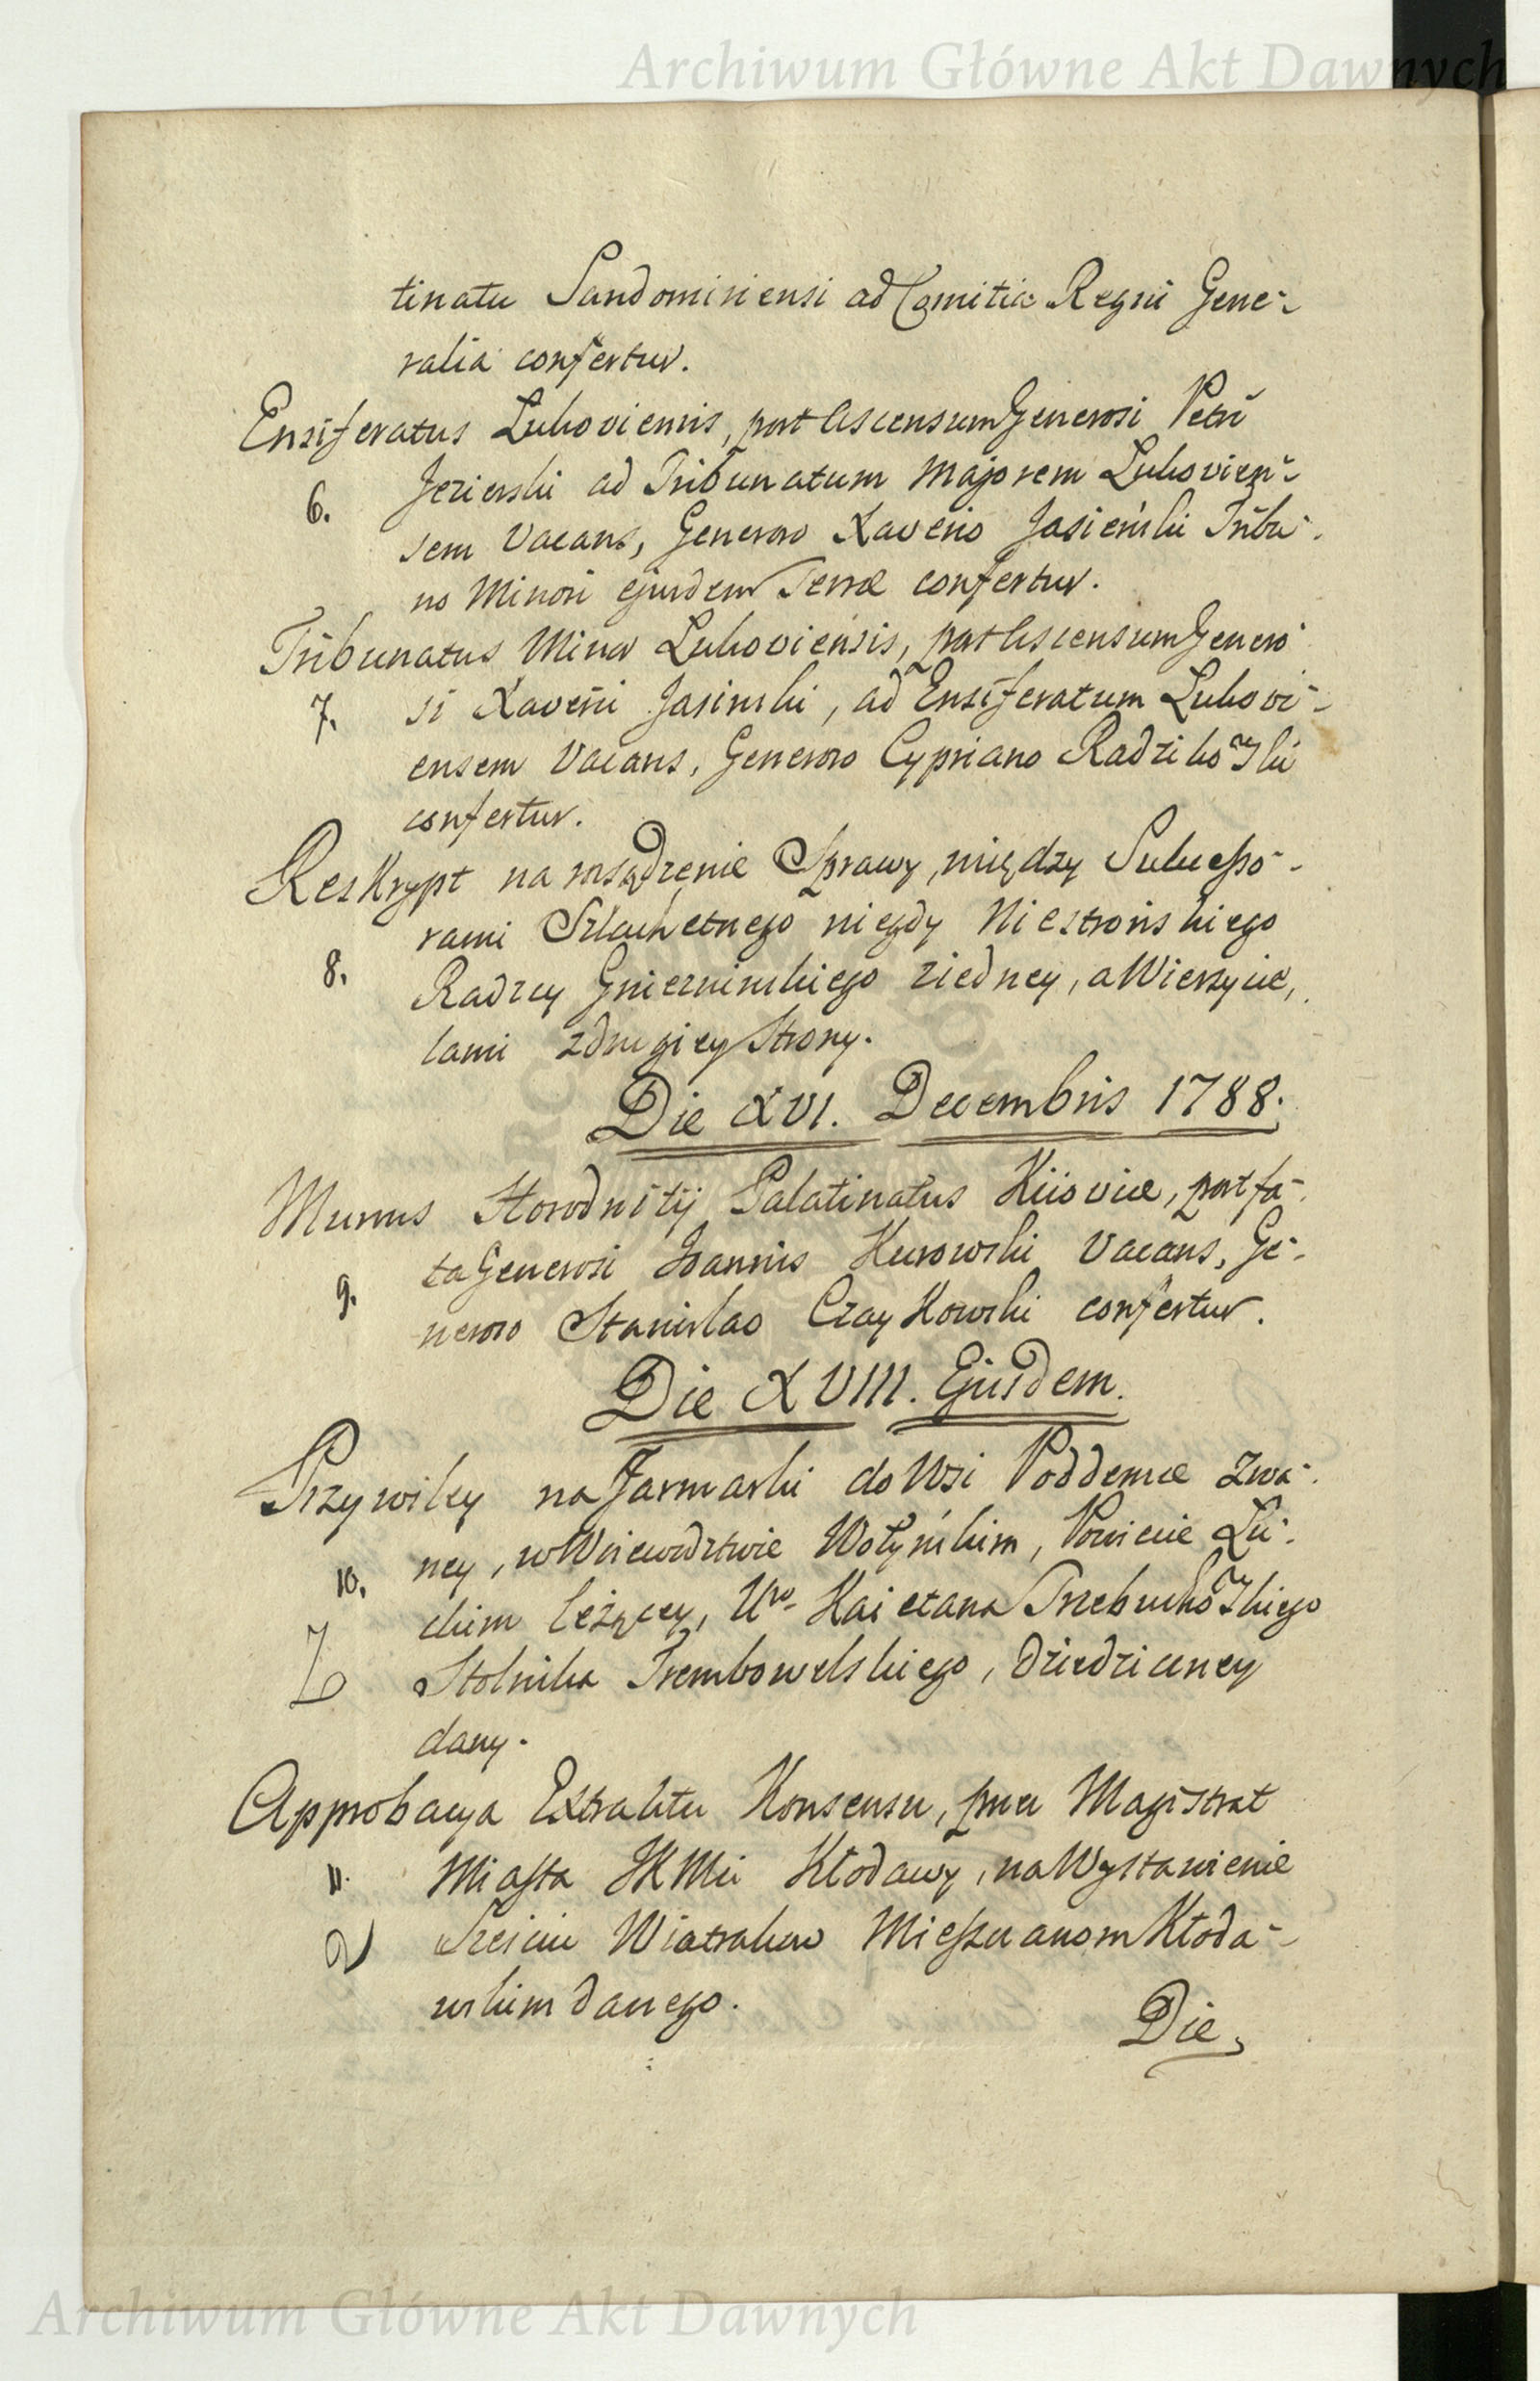 Archiwum Główne Akt Dawnych
tinatu Sandomiriensi ad Comitia Regni Gene-
ralia confertur.
Ensiferatus Lukoviensis, post Ascensum Generosi Petri
6. Jezierski ad Tribunatum Majorem Lukovien-
sem Vacans, Generoso Xaverio Jasieński Tribu-
no Minori ejusdem Terræ confertur.
Tribunatus Minor Lukoviensis, post Ascensum Genero-
7. si Xaverii Jasinski, ad Ensiferatum Lukovi-
ensem Vacans, Generoso Cypriano Radziko
confertur.
Reskrypt na rosądzenie Sprawy, między Sukcesso-
rami Szlachetnego niegdy Niestrońskiego
8. Radzcy Gniezninskiego ziedney, a Wierzycie,
lami zdrugiey Strony.
Die XVI. Decembris 1788.
Munus Horodnitij Palatinatus Kiioviæ, post fa-
9. ta Generosi Joannis Kurowski Vacans, Ge-
neroso Stanislao Czaykowski confertur.
Die XVIII. Ejusdem.
Przywiley na Jarmarki do Wsi Poddemce zwa-
10. ney, w Woiewodztwie Wołyńskim, Powiecie Łu-
ckim leżącey, Uro Kaietana Trzebucho
Stolnika Trembowelskiego, dziedziczney
dany.
Approbacya Extraktu Konsensu, przez Magistrat
11. Miasta JKMci Kłodawy, na Wystawienie
Sześciu Wiatrakow Mieszczanom Kłoda-
wskim danego.
Die
Archiwum Główne Akt Dawnych